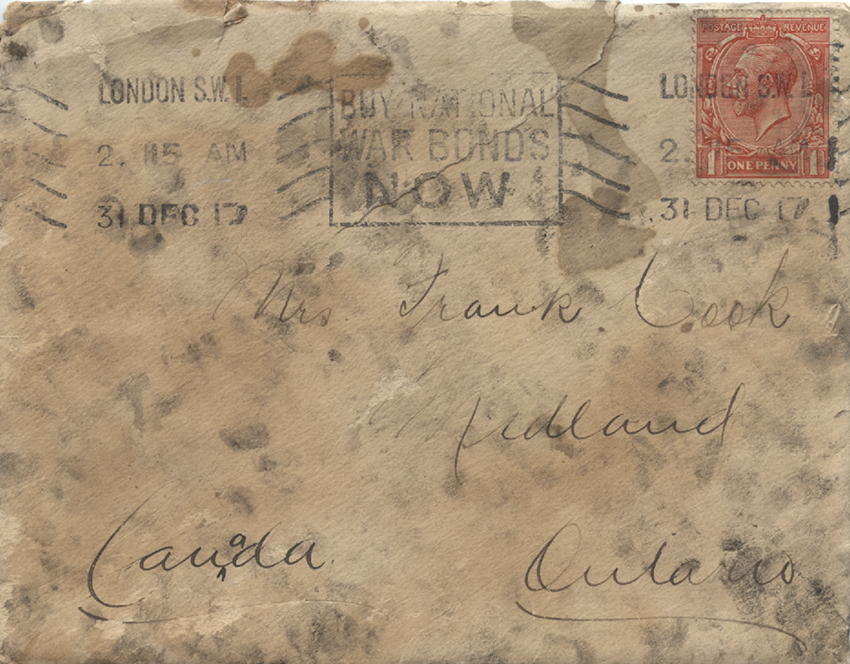 POSTAGE REVENUE
LONDON S.W.1. BUY NATIONAL LONDON S.W.1.
2. 115 AM WAR BONDS 2.
1 ONE PENNY 1
31 DEC 17 NOW! 31 DEC 17
Mrs. Frank Cook
Midland
Canada. Ontario